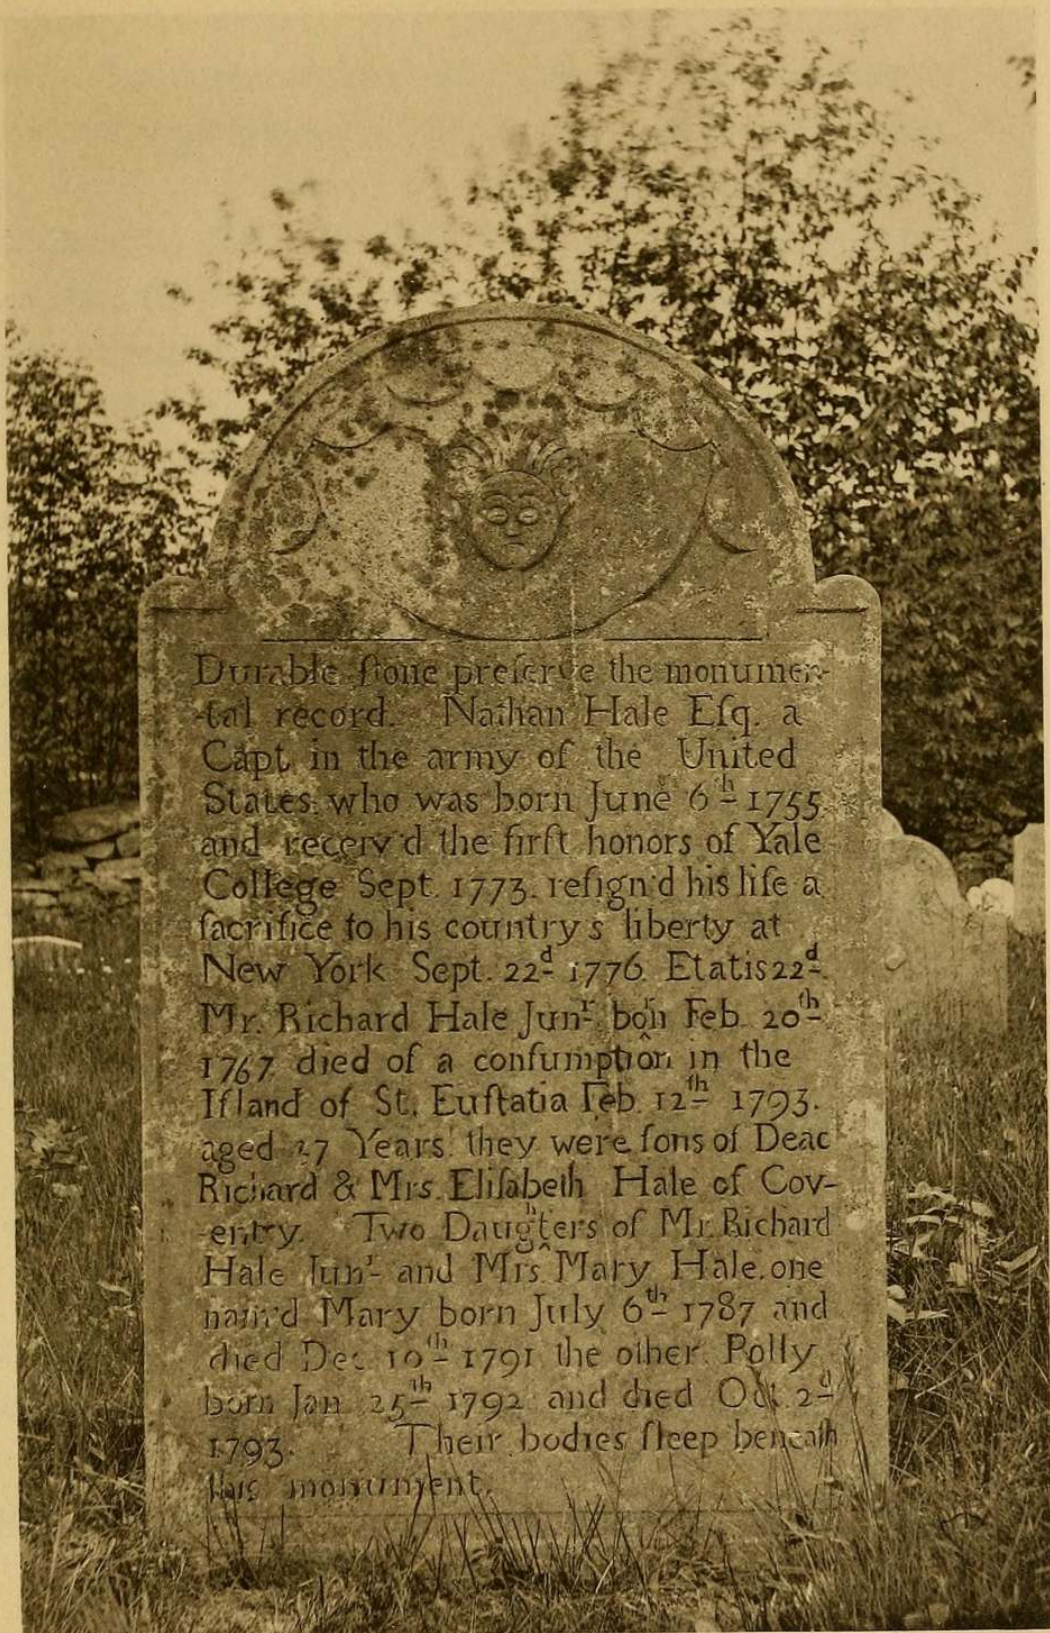 Durable ſtone preſerve the monumen-
-tal record. Nathan Hale Eſq. a
Capt. in the army of the United
States. who was born June 6th 1755
and receiv'd the firſt honors of Yale
College Sept. 1773. reſign'd his life a
ſacrifice to his country's liberty at
New York Sept. 22d 1776. Etatis 22d.
Mr. Richard Hale Junr. born Feb. 20th
1767 died of a conſumption in the
Iſland of St. Euſtatia Feb. 12th 1793.
aged 27 Years. they were ſons of Deac
Richard & Mrs. Eliſabeth Hale of Cov-
-entry. Two Daughters of Mr. Richard
Hale Junr. and Mrs. Mary Hale. one
nam'd Mary born July 6th 1787 and
died Dec. 10th 1791 the other Polly
born Jan. 25th 1792 and died Oct. 2d
1793. Their bodies ſleep beneath
this monument.